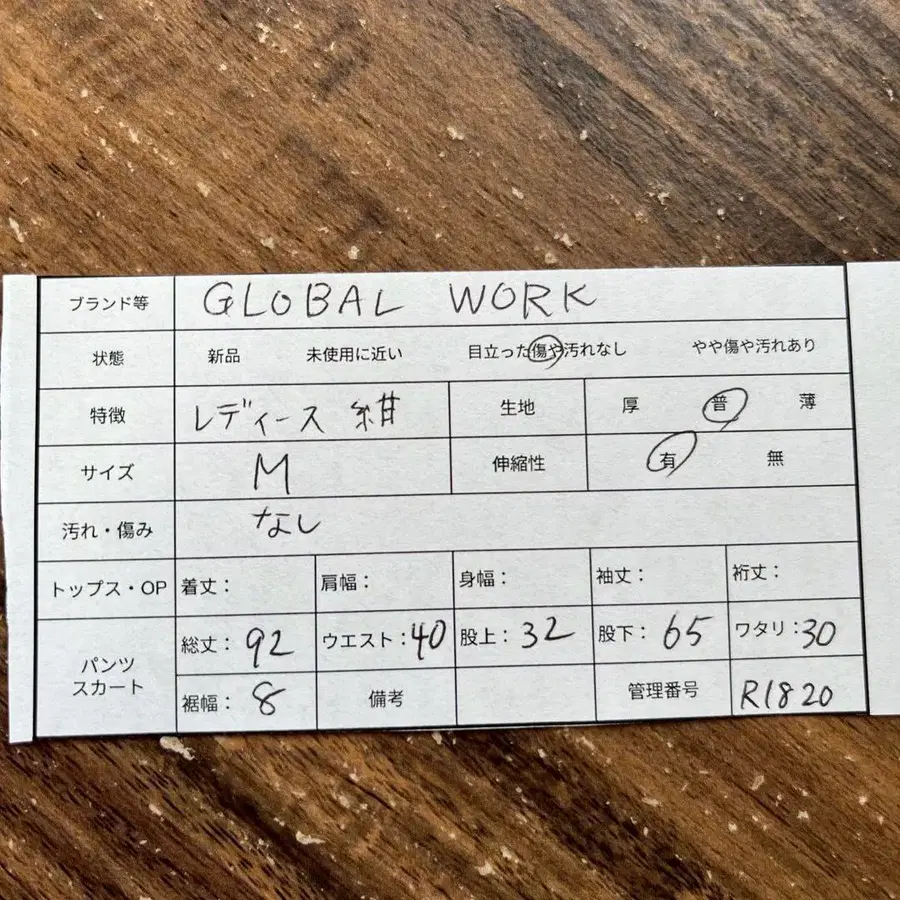 ブランド等 GLOBAL WORK
状態 新品 未使用に近い 目立った傷や汚れなし やや傷や汚れあり
特徴 レディース 紺 生地 厚 普 薄
サイズ M 伸縮性 有 無
汚れ・傷み なし
トップス・OP 着丈: 肩幅: 身幅: 袖丈: 裄丈:
パンツ スカート 総丈: 92 ウエスト: 40 股上: 32 股下: 65 ワタリ: 30
裾幅: 8 備考 管理番号 R1820